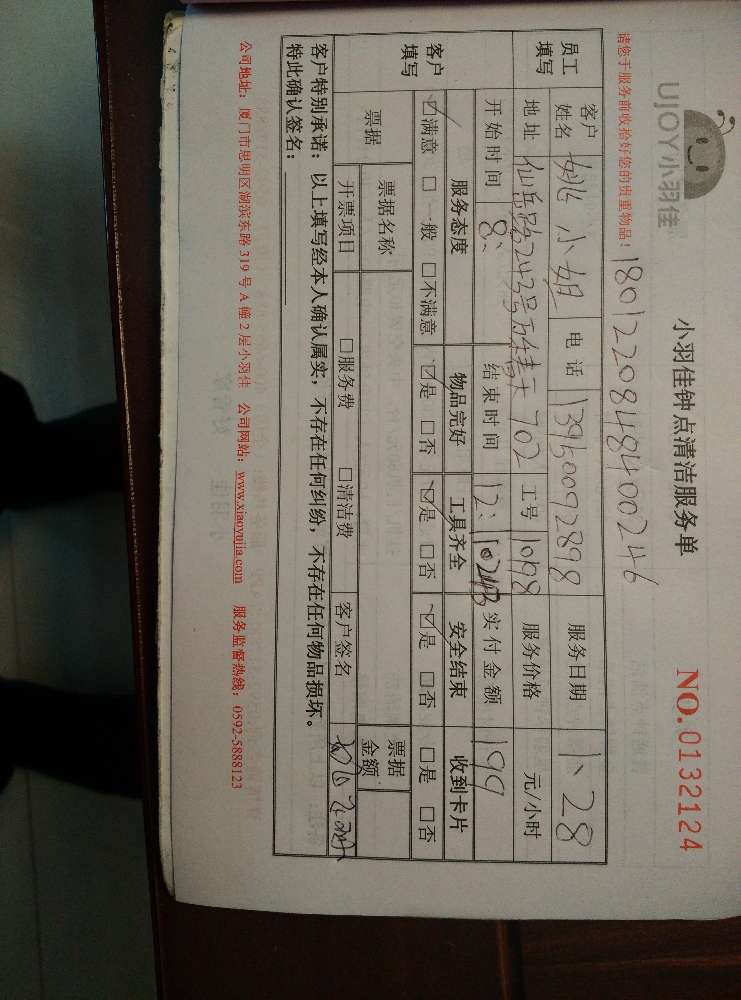 UJOY小羽佳
小羽佳钟点清洁服务单
NO.0132124
请您于服务前收拾好您的贵重物品！
1801220848400246
员工填写
客户姓名 姚小姐 电话 13950092898 服务日期 1、28
地址 仙岳路243号 702 工号 1098 服务价格 元/小时
开始时间 8: 结束时间 12: 实付金额 199
客户填写
服务态度 物品完好 工具齐全 安全结束 收到卡片
☑满意 □一般 □不满意 ☑是 □否 ☑是 □否 ☑是 □否 □是 □否
票据 票据名称 票据金额
开票项目 □服务费 □清洁费 客户签名
客户特别承诺：以上填写经本人确认属实，不存在任何纠纷，不存在任何物品损坏。
特此确认签名：
公司地址：厦门市思明区湖滨东路 319 号 A 幢 2 层小羽佳 公司网站：www.xiaoyujia.com 服务监督热线：0592-5888123